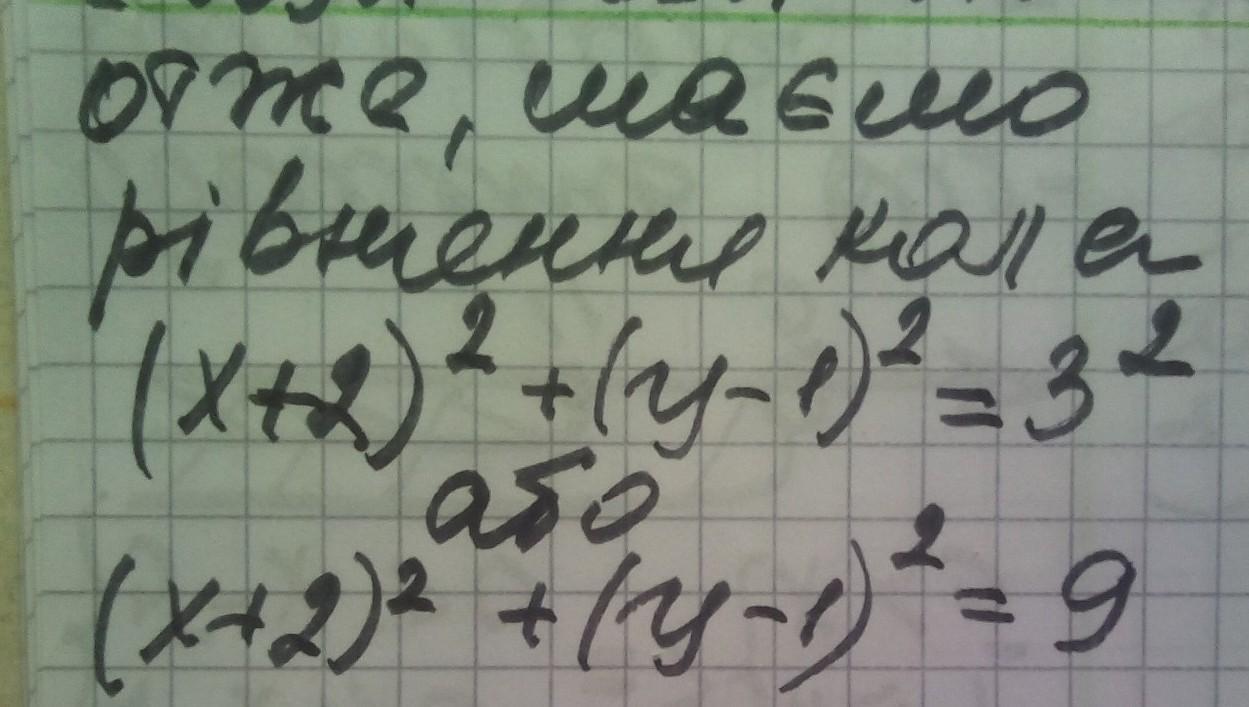 отже, маємо
рівняння кола
(x+2)² + (y-1)² = 3²
або
(x+2)² + (y-1)² = 9